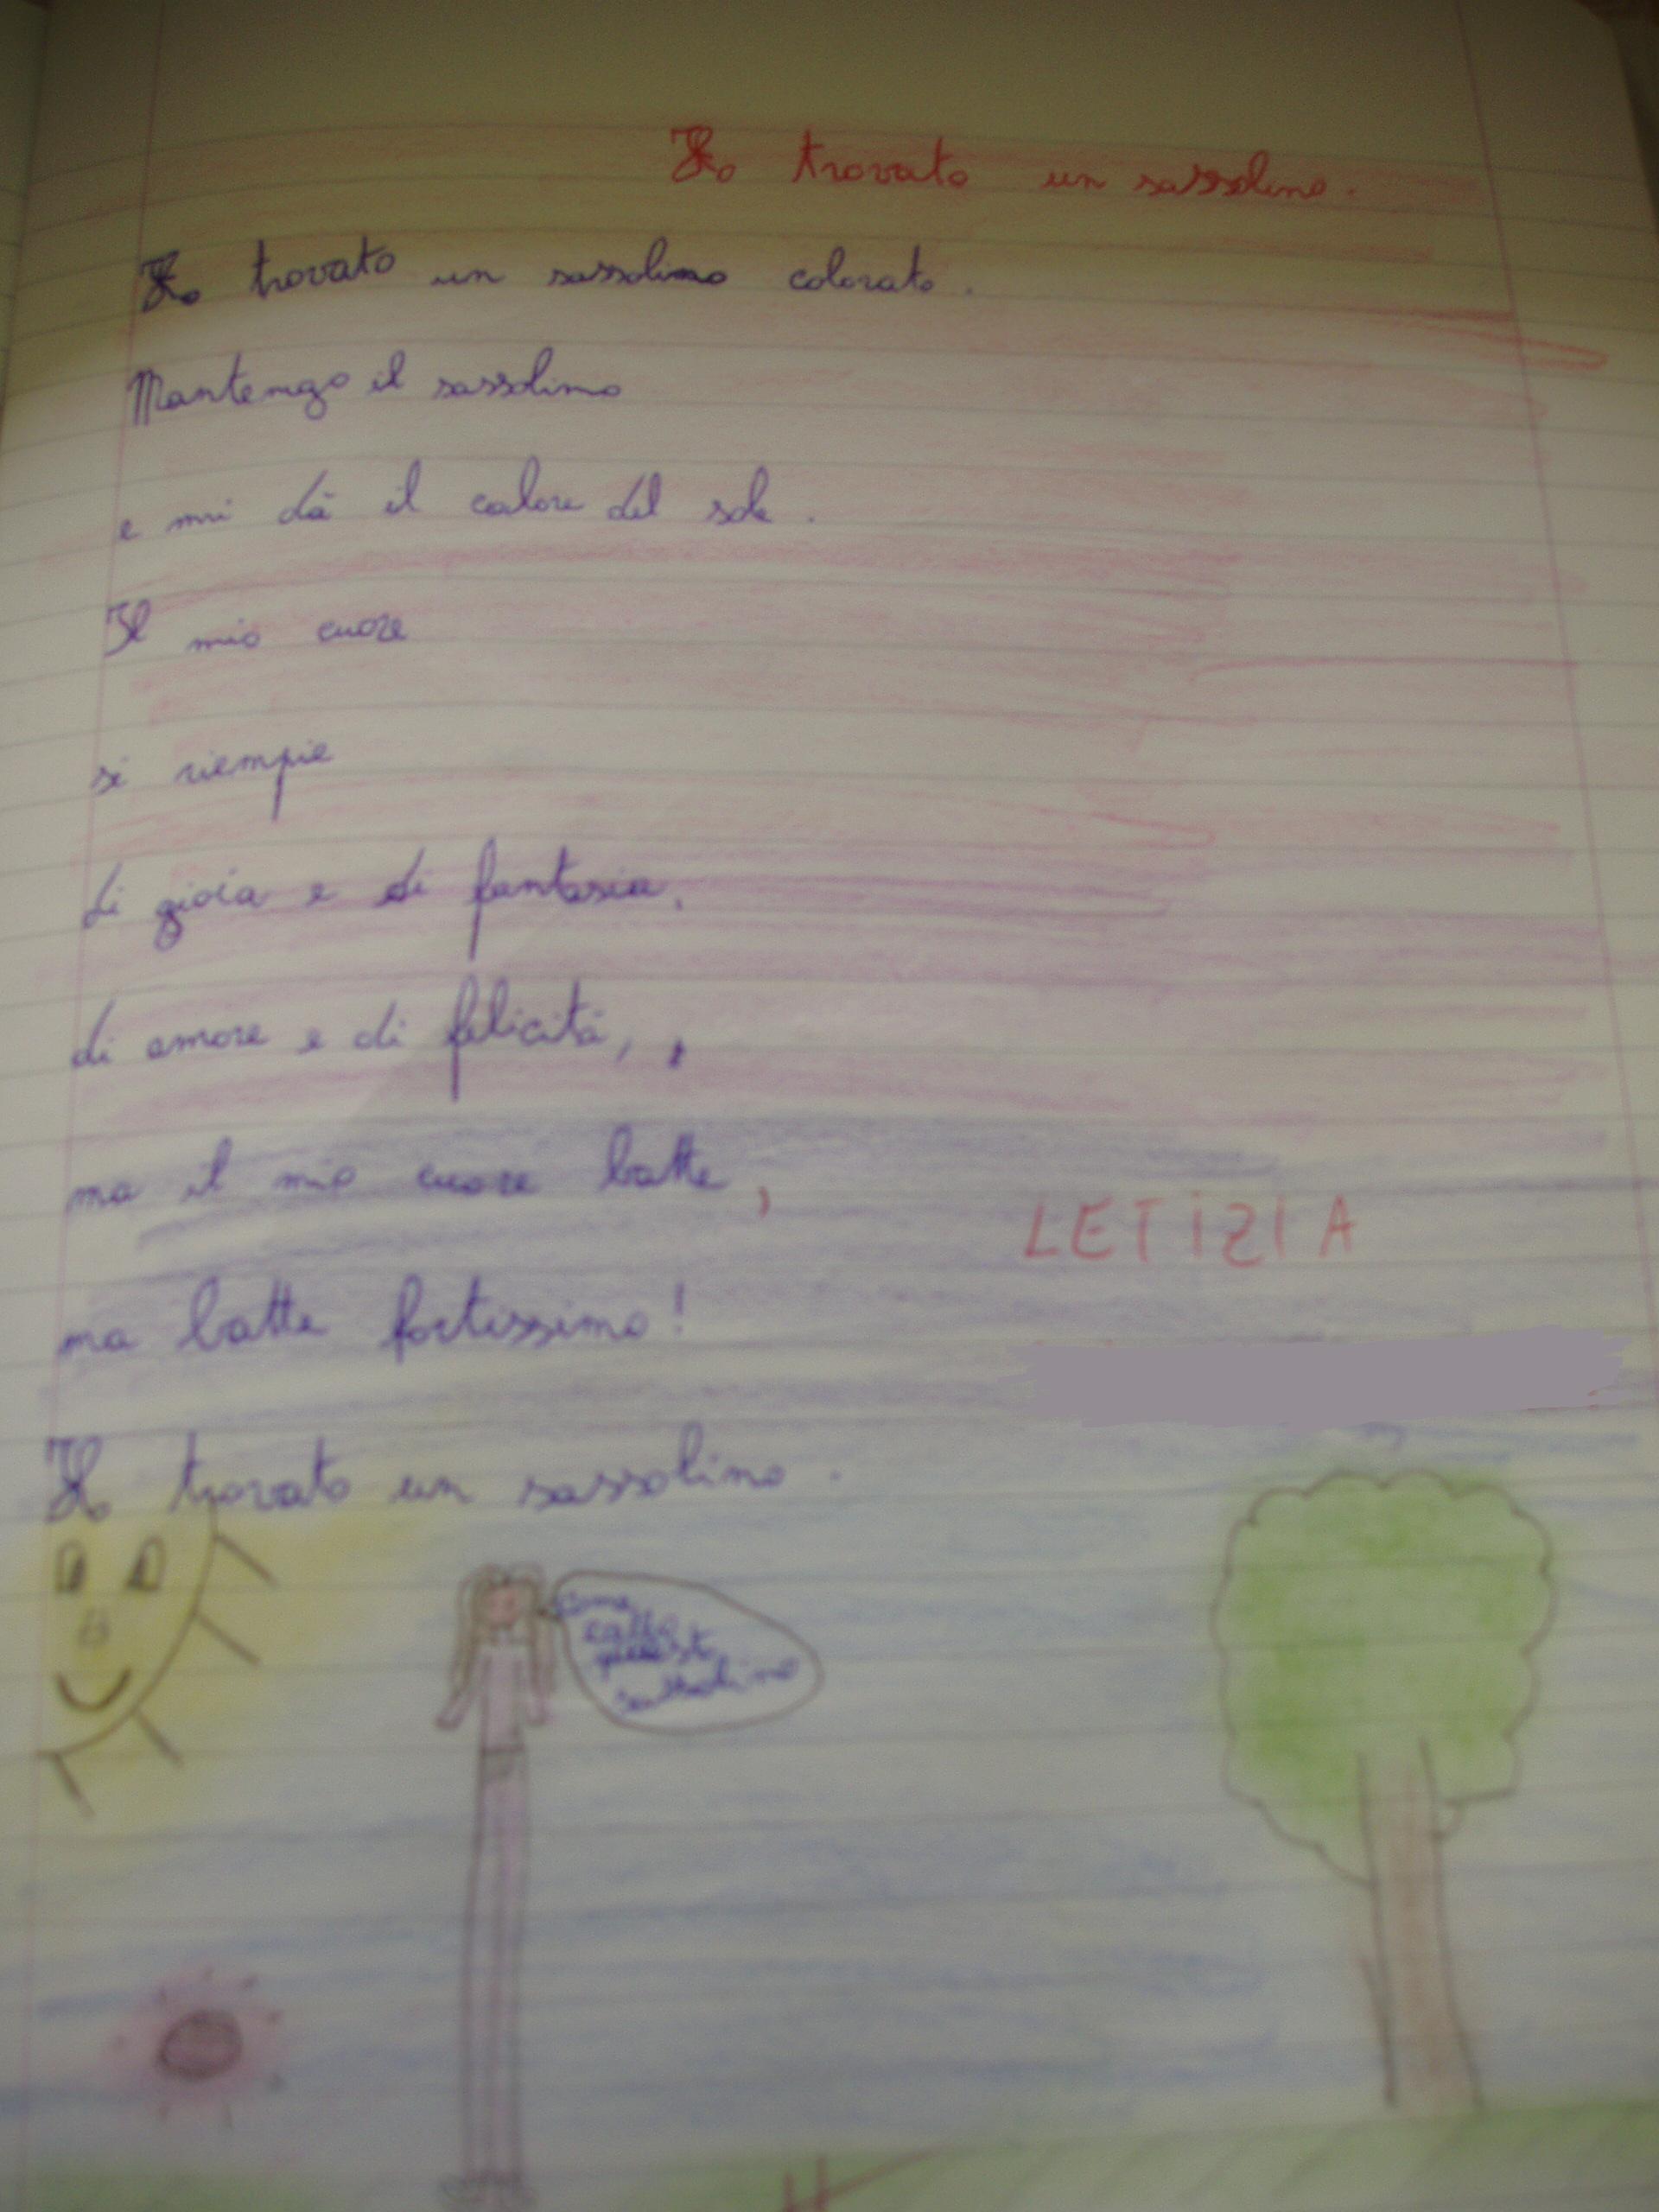 Ho trovato un sassolino.
Ho trovato un sassolino colorato.
Mantengo il sassolino
e mi dà il calore del sole.
Il mio cuore
si riempie
di gioia e di fantasia,
di amore e di felicità,,
ma il mio cuore batte,
LETIZIA
ma batte fortissimo!
Ho trovato un sassolino.
come
sassolino